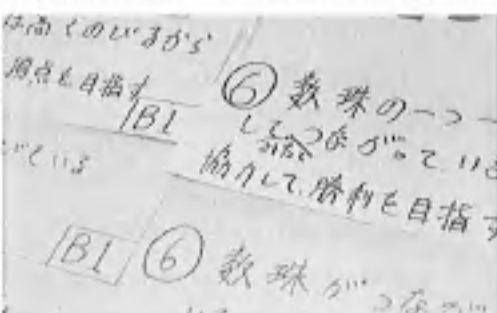 は高くのびるから
頂点を目指す
B1
ている
⑥ 数珠の一つ一
してつながっている
協力して、勝利を目指す
B1
⑥ 数珠がつなが